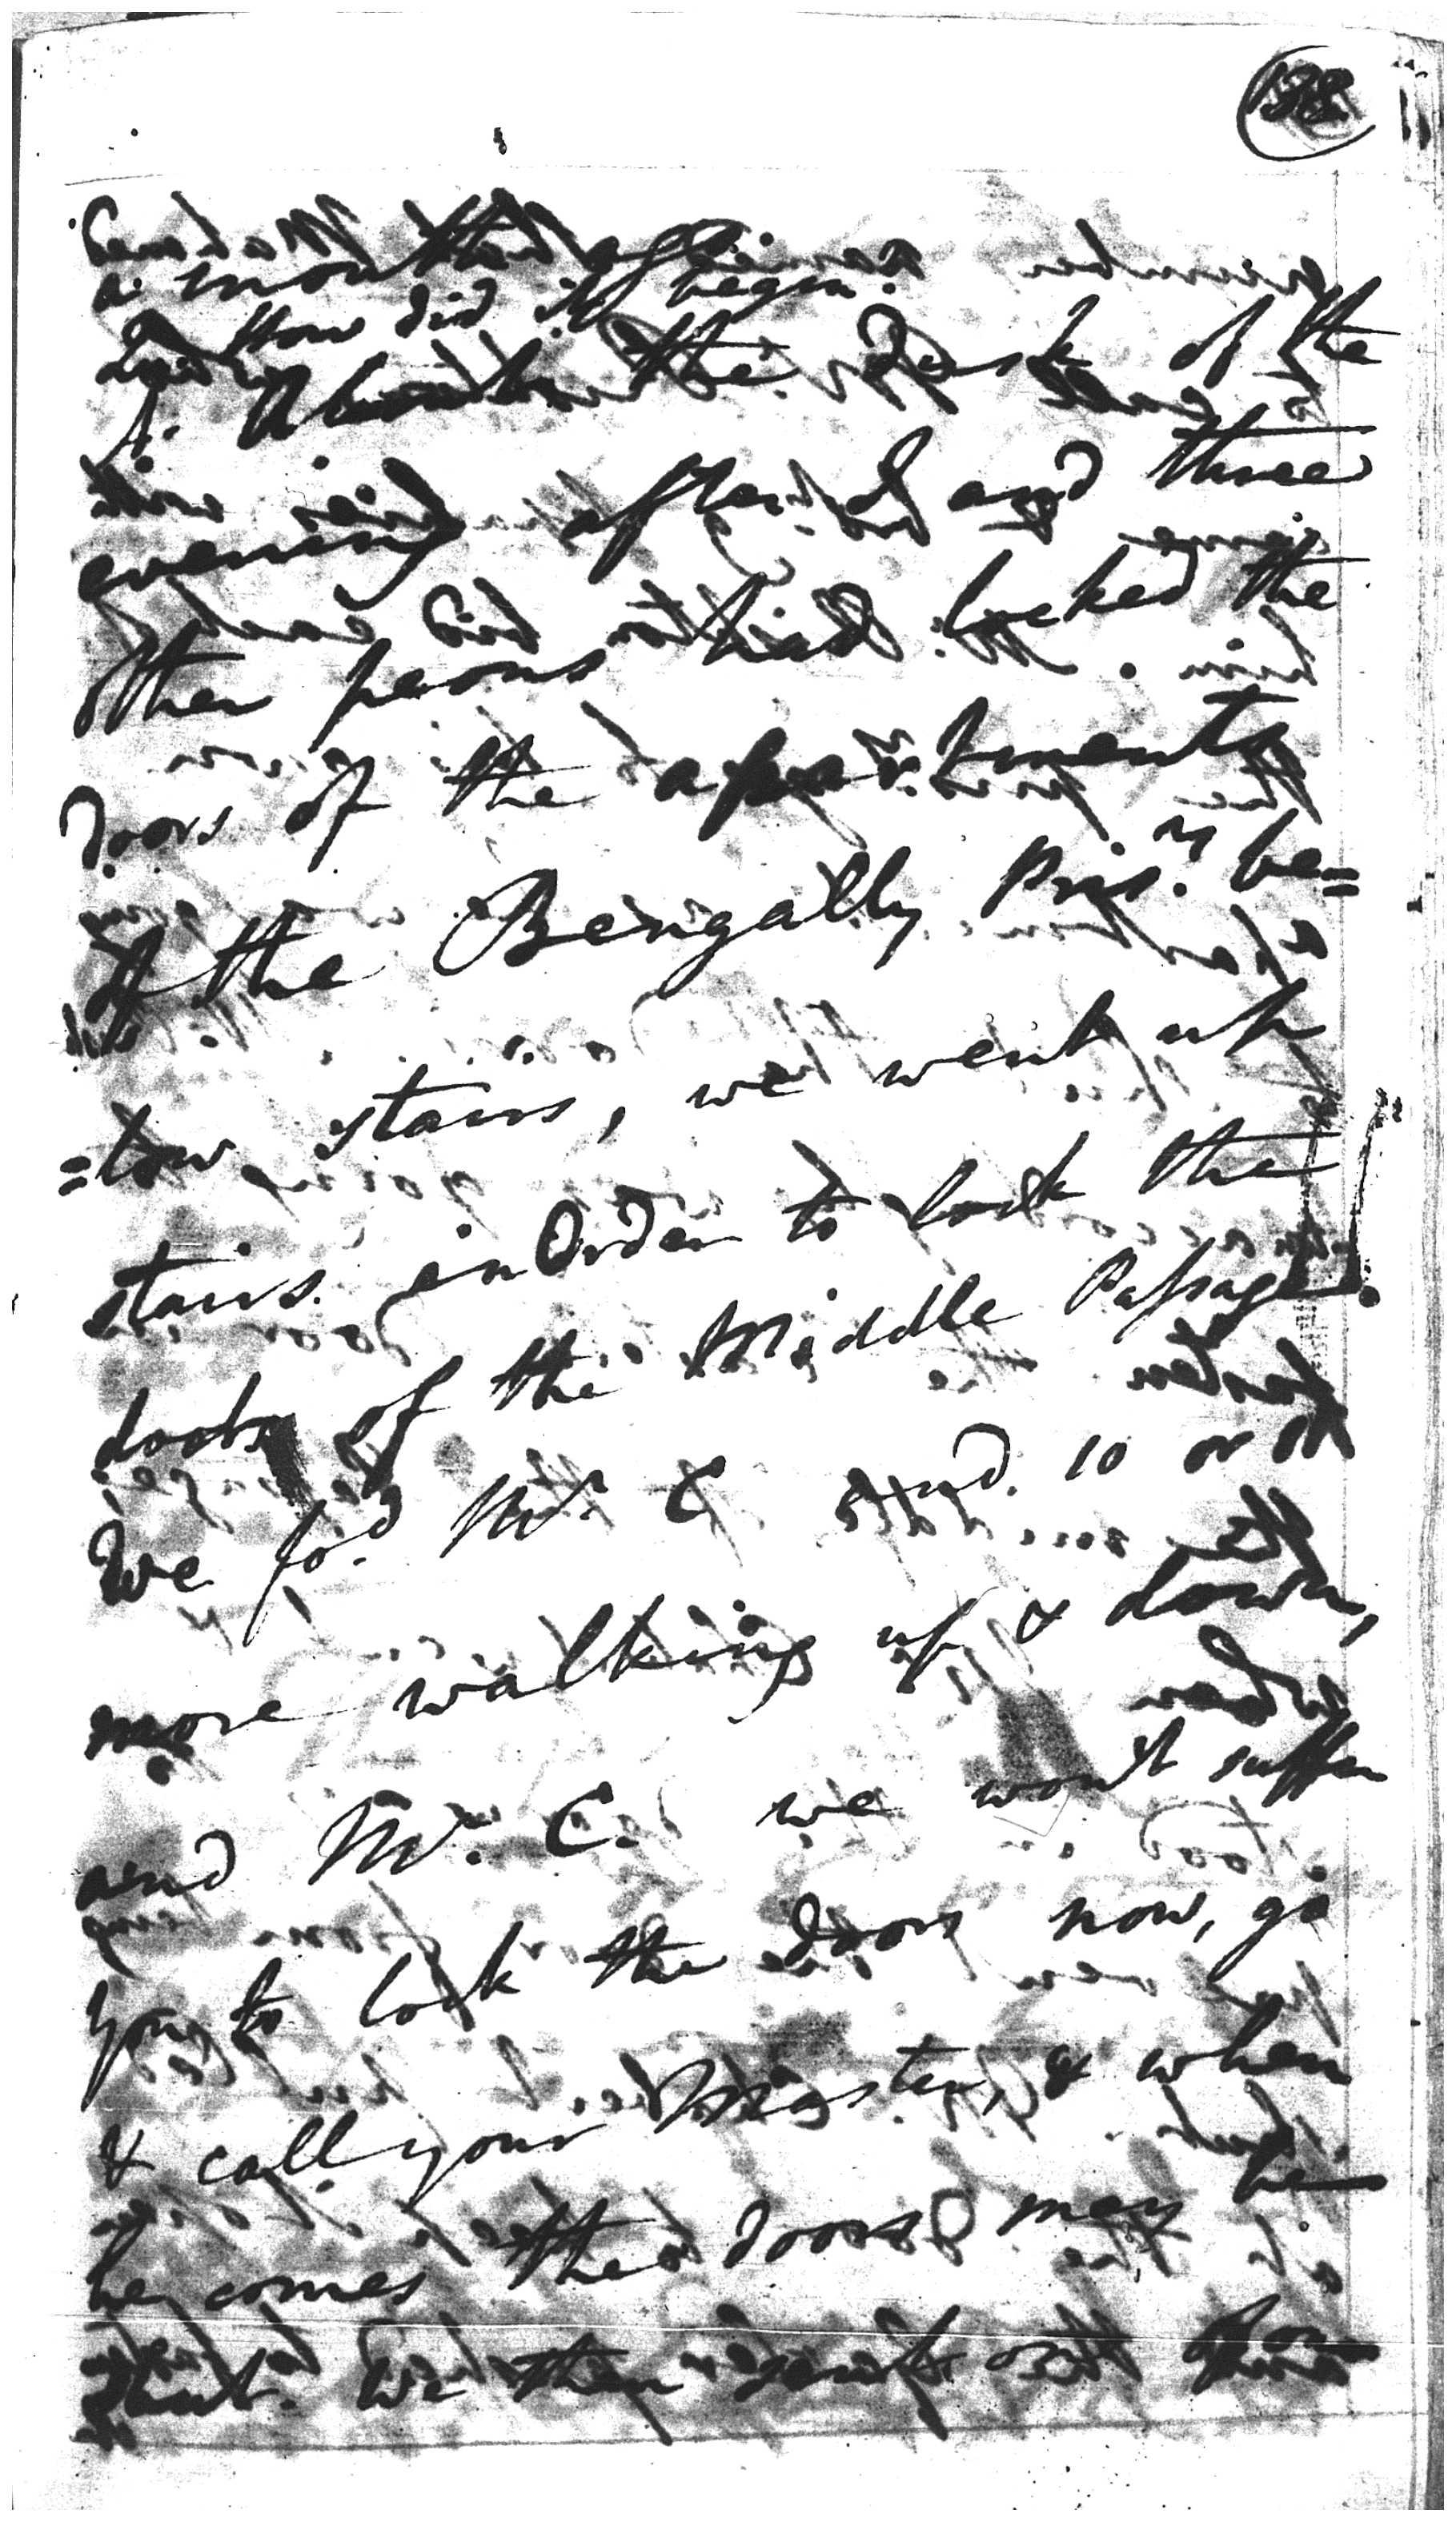 a month ago.
How did it begin.
A. About the dusk of the
evening after I and three
other peons had locked the
doors of the apartments
of the Bengally Pris.rs be=
=low stairs, we went up
stairs in Order to lock the
doors of the Middle Passage.
We fo.d Mr. C and 10 or
more walking up & down,
and Mr. C. we won't suffer
you to lock the doors now, go
& call your Master, & when
he comes the doors may be
shut. We then sent out